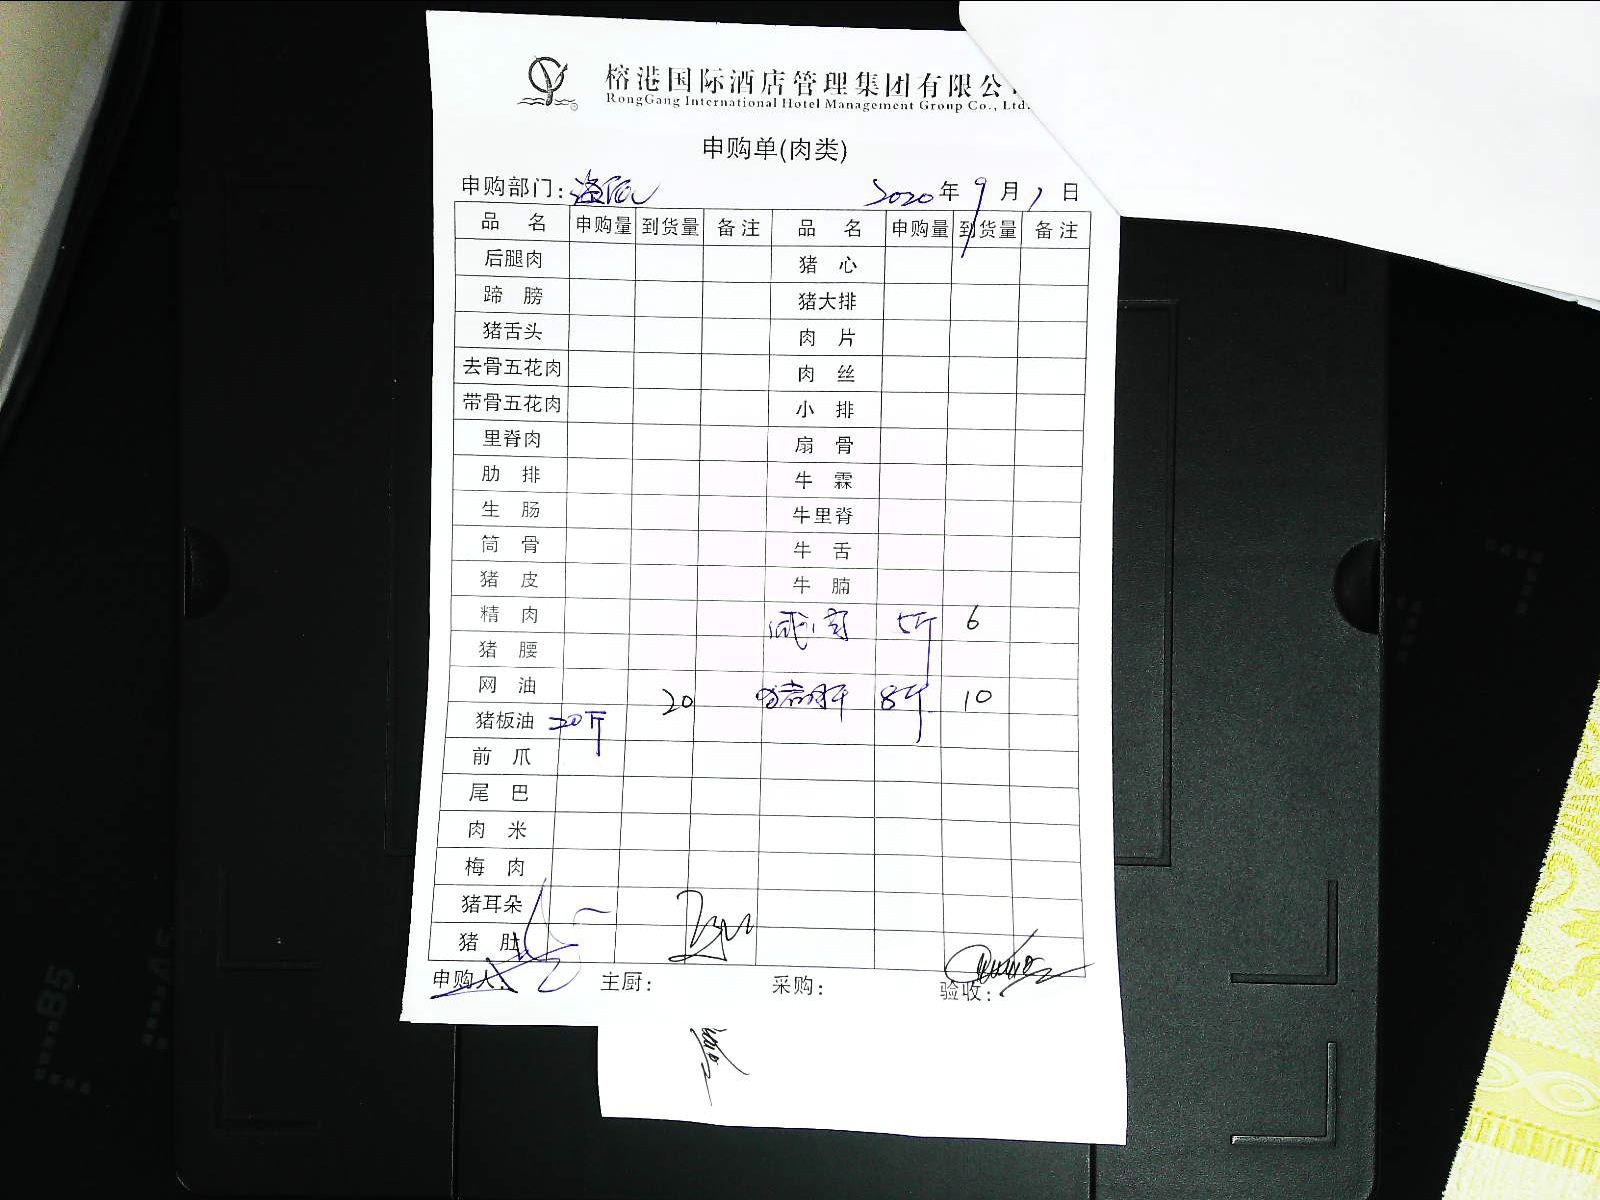 榕港国际酒店管理集团有限公
RongGang International Hotel Management Group Co., Ltd.
申购单(肉类)
申购部门: 2020年9月1日
品 名 申购量 到货量 备注 品 名 申购量 到货量 备注
后腿肉 猪 心
蹄 膀 猪大排
猪舌头 肉 片
去骨五花肉 肉 丝
带骨五花肉 小 排
里脊肉 扇 骨
肋 排 牛 霖
生 肠 牛里脊
筒 骨 牛 舌
猪 皮 牛 腩
精 肉 5斤 6
猪 腰
网 油 20 猪肝 8斤 10
猪板油 20斤
前 爪
尾 巴
肉 米
梅 肉
猪耳朵
猪 肚
申购人: 主厨: 采购: 验收:
B5
A5